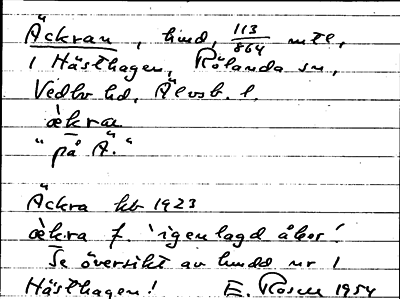 Äckran, hmd, 113/864 mtl,
i Hästhagen, Rölanda sn,
Vedbo hd, Älvsb. l.
ækra
"på Ä."
Äckra kb 1923
ækra f. 'igenlagd åker'
Se översikt av hmdd nr 1
Hästhagen! E. Rosell 1954